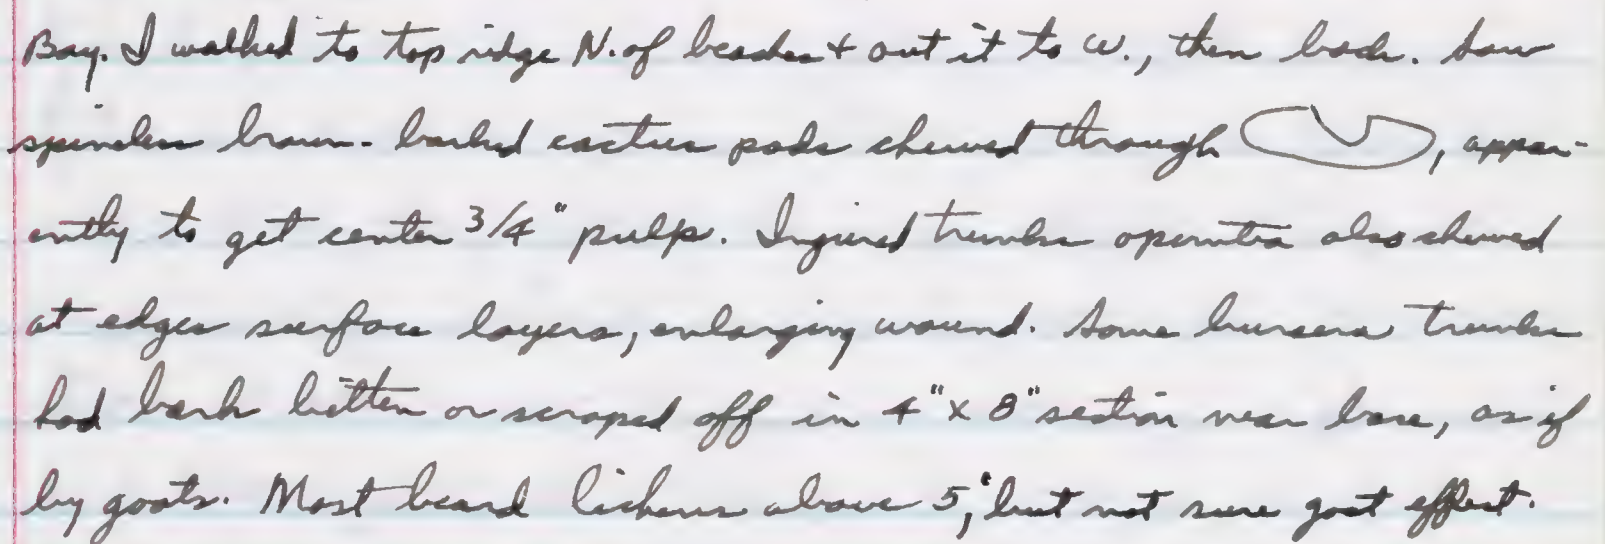 Bay. I walked to top ridge N. of beaches + out it to W., then back. Saw
spineless brown-barked cactus pads chewed through , appar-
ently to get center 3/4" pulp. Injured trunks opuntia also chewed
at edges surface layers, enlarging wound. Some bursera trunks
had bark bitten or scraped off in 4" x 8" section near base, as if
by goats. Most beard lichens above 5', but not sure goat effect.